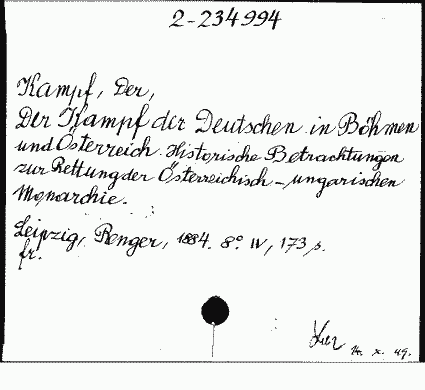 2-234994
Kampf, Der,
Der Kampf der Deutschen in Böhmen
und Österreich. Historische Betrachtungen
zur Rettung der Österreichisch-ungarischen
Monarchie.
Leipzig, Renger, 1884. 8° IV, 173 s.
fr.
14. x. 49.